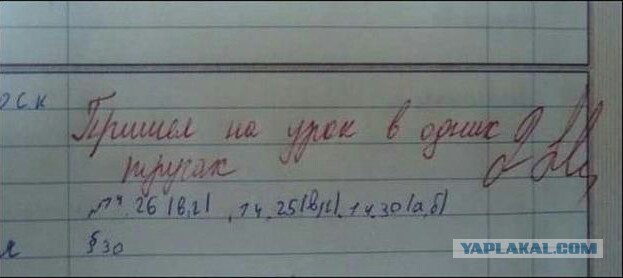 оск
Пришел на урок в одних
трусах
14.26(в,г), 14.25(в,г), 14.30(а,б)
я
§30
YAPLAKAL.COM